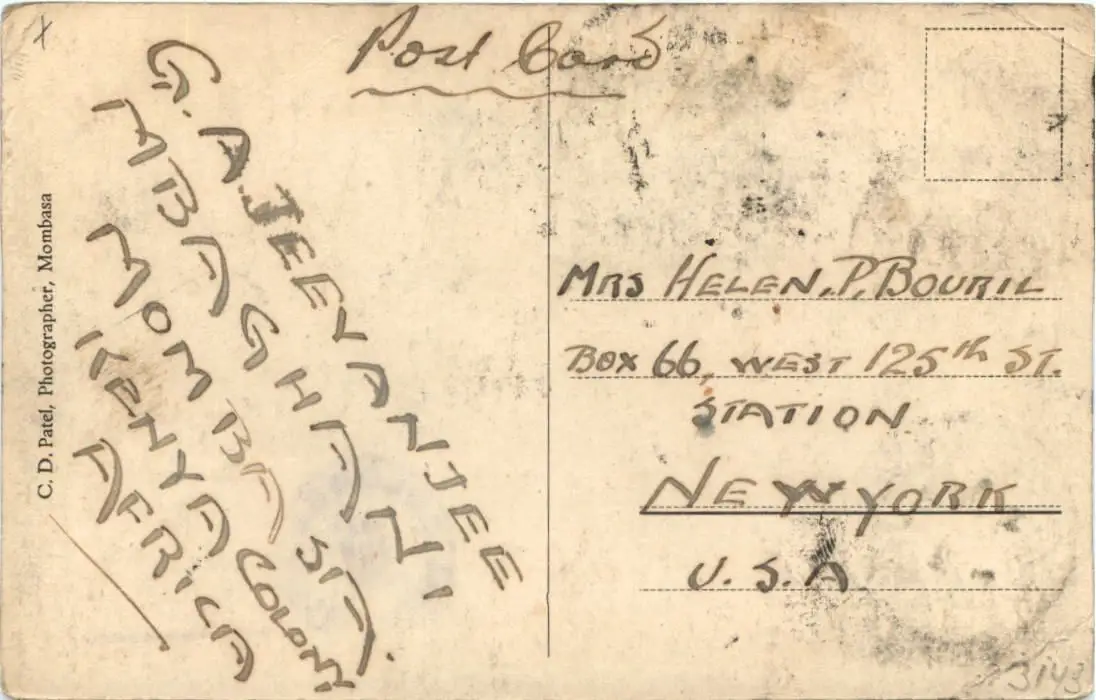 x
Post Card
C. D. Patel, Photographer, Mombasa
G. A. JEEVANJEE
MBAGHANI
MOMBASA.
KENYA COLONY
AFRICA
MRS HELEN. P. BOURIL
BOX 66, WEST 125th ST.
STATION
NEW YORK
U. S. A
3143